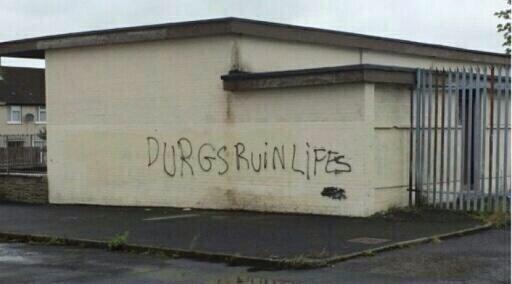 DURGS RUiN LiFES